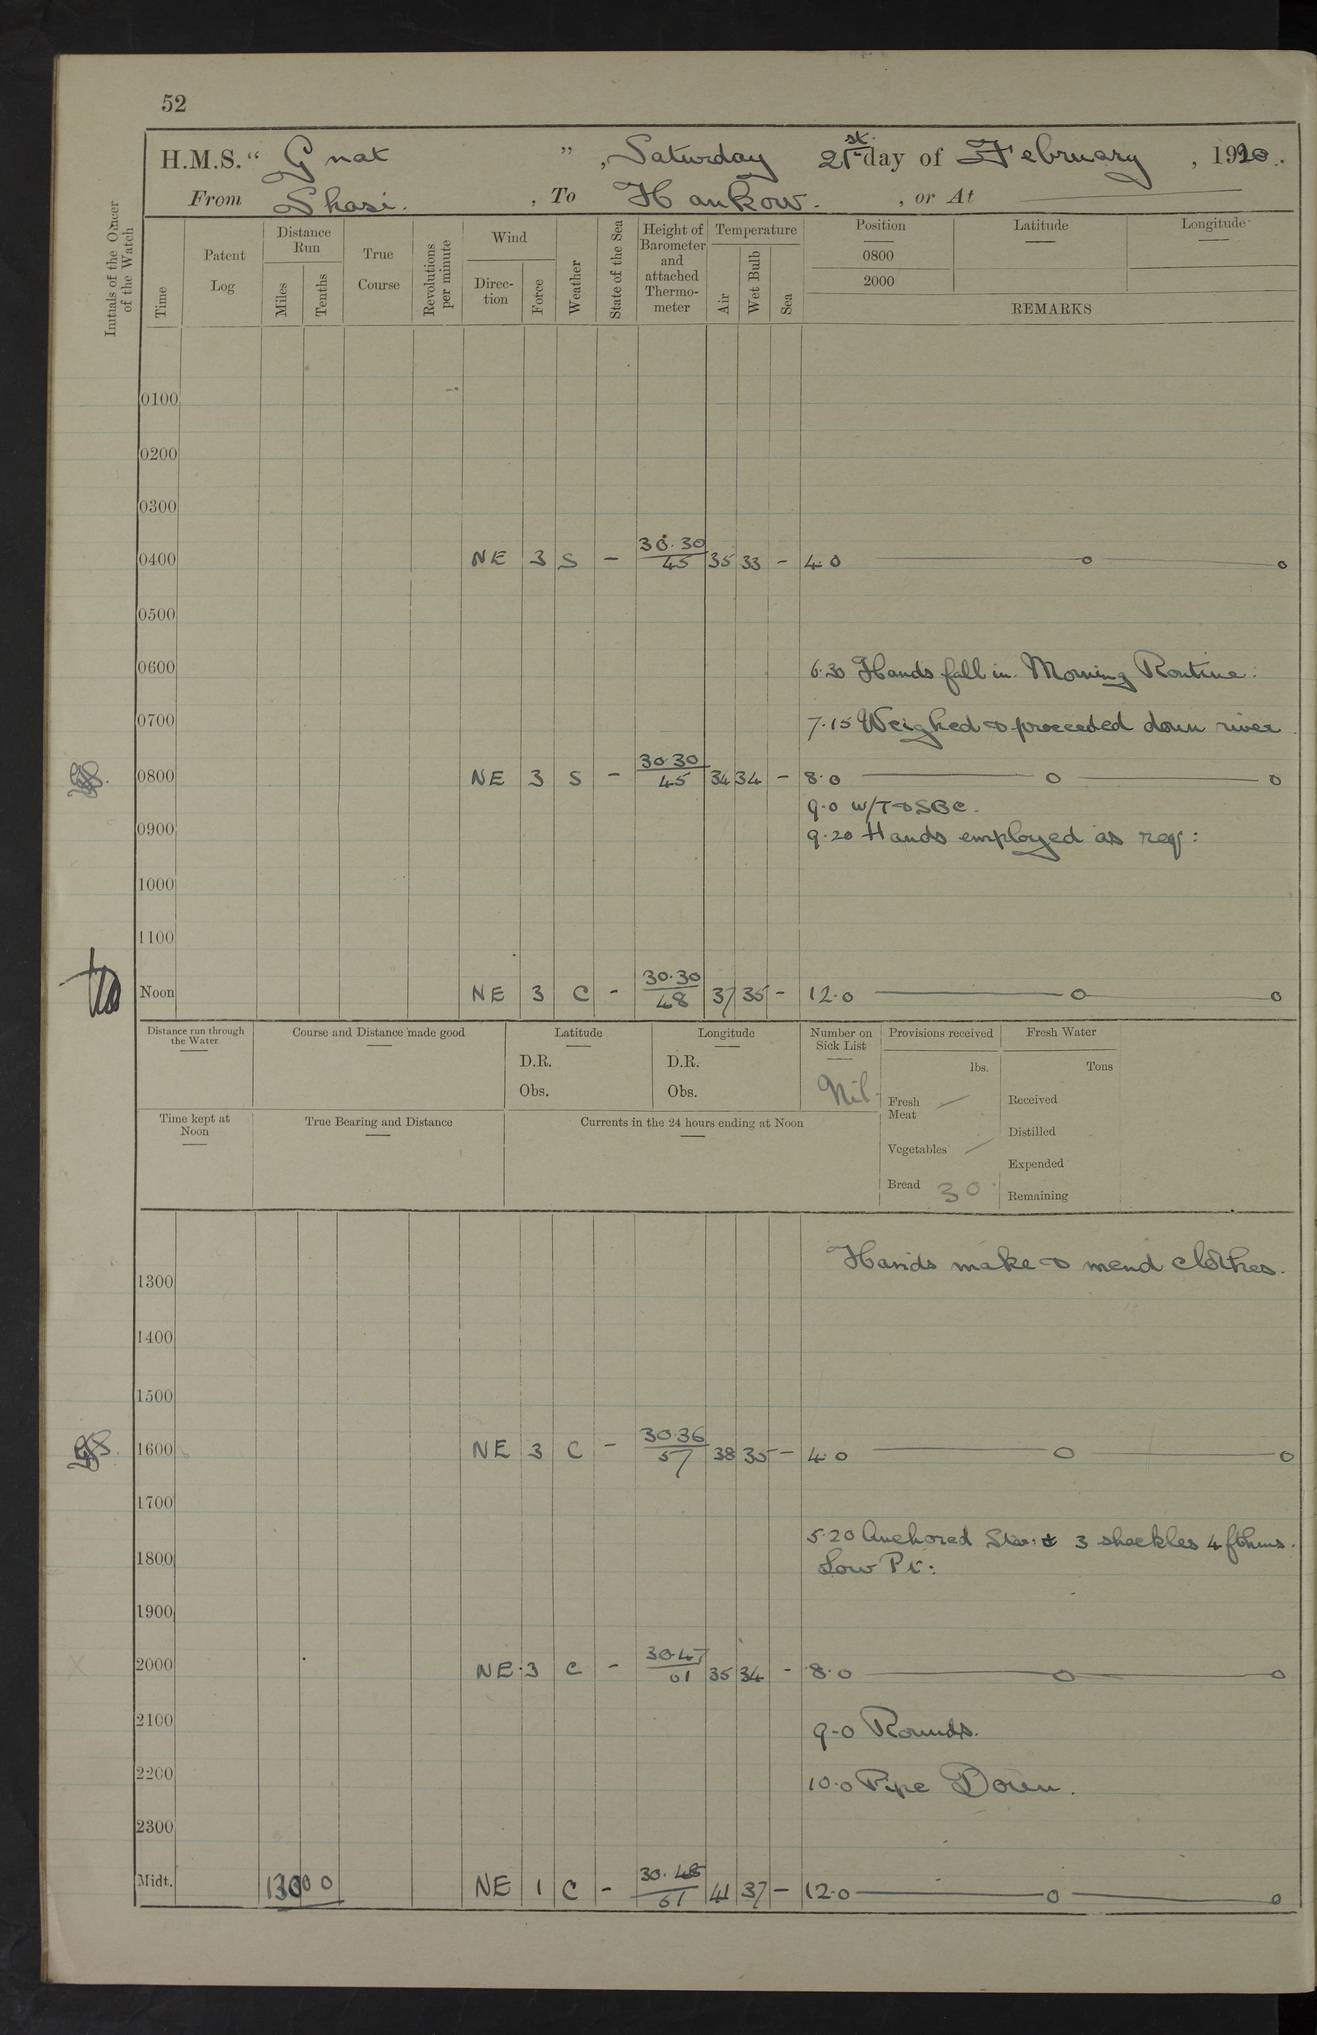 52
H.M.S. " Gnat " , Saturday 21st day of February , 1920.
From Shasi. , To Hankow. , or At
Initials of the Officer of the Watch
Time
Patent Log
Distance Run
Miles
Tenths
True Course
Revolutions per minute
Wind
Direction
Force
Weather
State of the Sea
Height of Barometer and attached Thermometer
Temperature
Air
Wet Bulb
Sea
Position
0800
2000
Latitude
Longitude
REMARKS
0100
0200
0300
0400 NE 3 S - 30.30 45 35 33 - 4.0
0500
0600 6.30 Hands fall in. Morning Routine.
0700 7.15 Weighed & proceeded down river
0800 NE 3 S - 30.30 45 34 34 - 8.0
9.0 W/T & SBC.
0900 9.20 Hands employed as req:
1000
1100
Noon NE 3 C - 30.30 48 37 35 - 12.0
Distance run through the Water
Course and Distance made good
Latitude
D.R.
Obs.
Longitude
D.R.
Obs.
Number on Sick List
Nil
Provisions received
lbs.
Fresh Meat
Vegetables
Bread 30
Fresh Water
Tons
Received
Distilled
Expended
Remaining
Time kept at Noon
True Bearing and Distance
Currents in the 24 hours ending at Noon
Hands make & mend clothes.
1300
1400
1500
1600 NE 3 C - 30.36 57 38 35 - 4.0
1700
5.20 Anchored Star: 3 shackles 4 fthms.
1800 Low Pt:
1900
2000 NE 3 C - 30.47 61 35 34 - 8.0
2100 9.0 Rounds.
2200 10.0 Pipe Down.
2300
Midt. 130 0 NE 1 C - 30.48 61 41 37 - 12.0